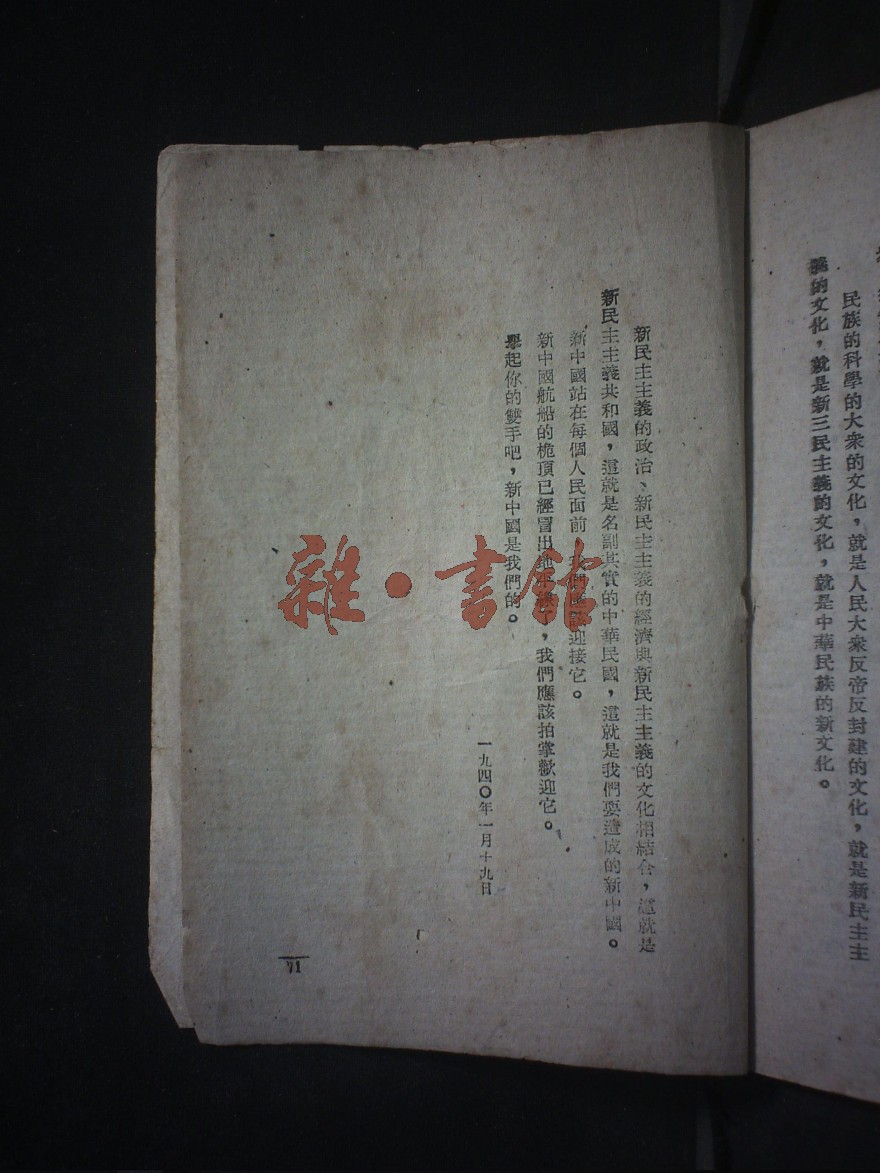 民族的科學的大衆的文化，就是人民大衆反帝反封建的文化，就是新民主主
義的文化，就是新三民主義的文化，就是中華民族的新文化。
新民主主義的政治、新民主主義的經濟與新民主主義的文化相結合，這就是
新民主主義共和國，這就是名副其實的中華民國，這就是我們要造成的新中國。
新中國站在每個人民面前，我們應該迎接它。
新中國航船的桅頂已經冒出地平線了，我們應該拍掌歡迎它。
舉起你的雙手吧，新中國是我們的。
一九四〇年一月十九日
71
雜·書館